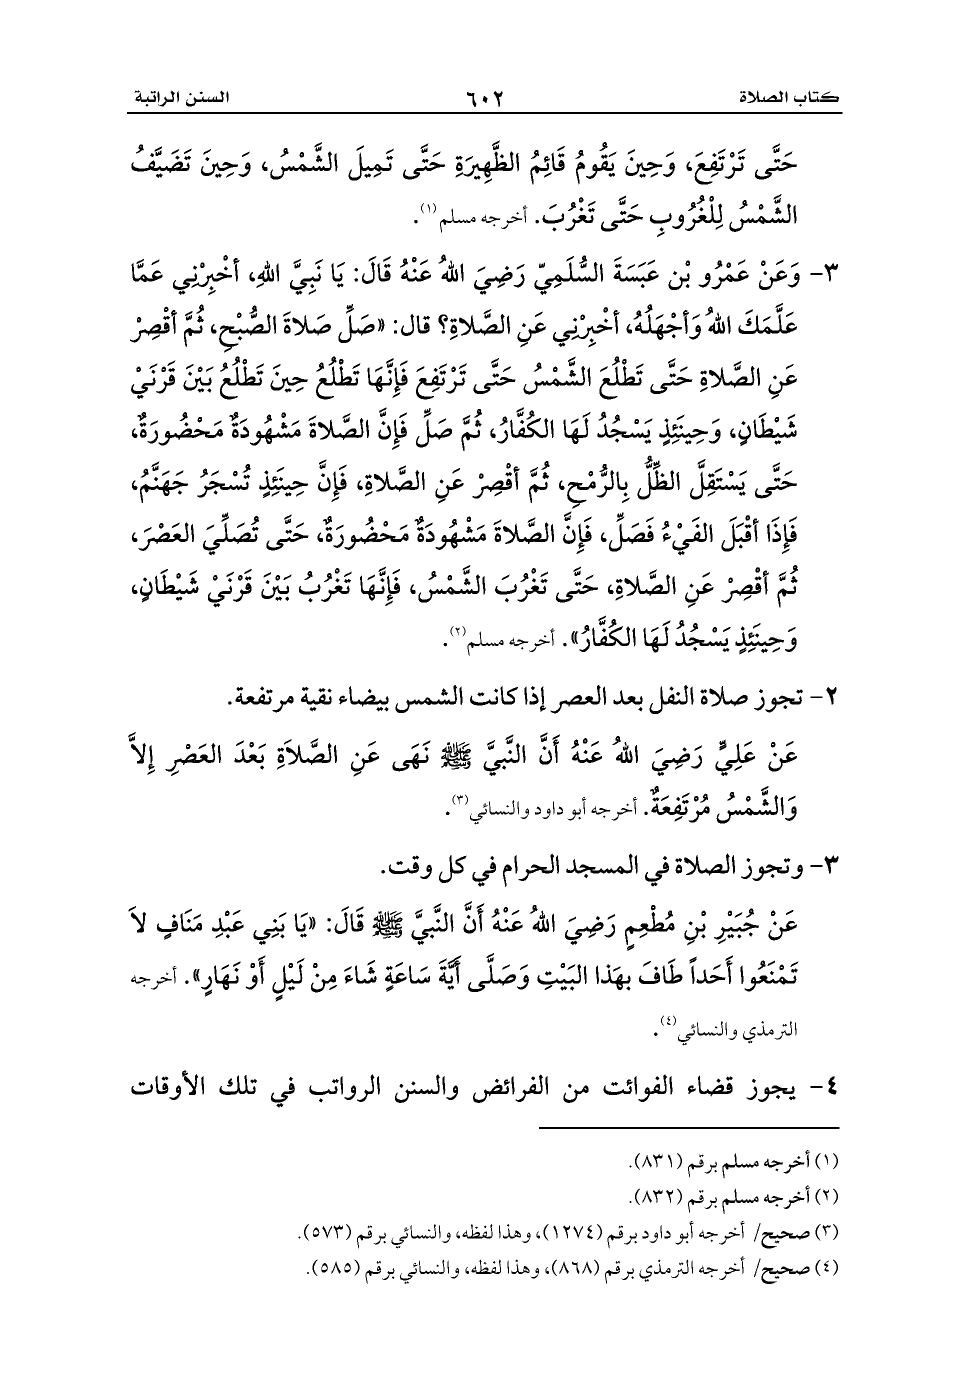 كتاب الصلاة ٦٠٢ السنن الراتبة
حَتَّى تَرْتَفِعَ، وَحِينَ يَقُومُ قَائِمُ الظَّهِيرَةِ حَتَّى تَمِيلَ الشَّمْسُ، وَحِينَ تَضَيَّفُ
الشَّمْسُ لِلْغُرُوبِ حَتَّى تَغْرُبَ. أخرجه مسلم(١).
٣- وَعَنْ عَمْرُو بْن عَبَسَةَ السُّلَمِيّ رَضِيَ اللهُ عَنْهُ قَالَ: يَا نَبِيَّ اللهِ، أَخْبِرْنِي عَمَّا
عَلَّمَكَ اللهُ وَأَجْهَلُهُ، أَخْبِرْنِي عَنِ الصَّلاةِ؟ قال: «صَلِّ صَلاةَ الصُّبْحِ، ثُمَّ أَقْصِرْ
عَنِ الصَّلاةِ حَتَّى تَطْلُعَ الشَّمْسُ حَتَّى تَرْتَفِعَ فَإِنَّهَا تَطْلُعُ حِينَ تَطْلُعُ بَيْنَ قَرْنَيْ
شَيْطَانٍ، وَحِينَئِذٍ يَسْجُدُ لَهَا الكُفَّارُ، ثُمَّ صَلِّ فَإِنَّ الصَّلاةَ مَشْهُودَةٌ مَحْضُورَةٌ،
حَتَّى يَسْتَقِلَّ الظِّلُّ بِالرُّمْحِ، ثُمَّ أَقْصِرْ عَنِ الصَّلاةِ، فَإِنَّ حِينَئِذٍ تُسْجَرُ جَهَنَّمُ،
فَإِذَا أَقْبَلَ الفَيْءُ فَصَلِّ، فَإِنَّ الصَّلاةَ مَشْهُودَةٌ مَحْضُورَةٌ، حَتَّى تُصَلِّيَ العَصْرَ،
ثُمَّ أَقْصِرْ عَنِ الصَّلاةِ، حَتَّى تَغْرُبَ الشَّمْسُ، فَإِنَّهَا تَغْرُبُ بَيْنَ قَرْنَيْ شَيْطَانٍ،
وَحِينَئِذٍ يَسْجُدُ لَهَا الكُفَّارُ». أخرجه مسلم(٢).
٢- تجوز صلاة النفل بعد العصر إذا كانت الشمس بيضاء نقية مرتفعة.
عَنْ عَلِيٍّ رَضِيَ اللهُ عَنْهُ أَنَّ النَّبِيَّ ﷺ نَهَى عَنِ الصَّلاَةِ بَعْدَ العَصْرِ إِلاَّ
وَالشَّمْسُ مُرْتَفِعَةٌ. أخرجه أبو داود والنسائي(٣).
٣- وتجوز الصلاة في المسجد الحرام في كل وقت.
عَنْ جُبَيْرِ بْنِ مُطْعِمٍ رَضِيَ اللهُ عَنْهُ أَنَّ النَّبِيَّ ﷺ قَالَ: «يَا بَنِي عَبْدِ مَنَافٍ لاَ
تَمْنَعُوا أَحَداً طَافَ بِهَذا البَيْتِ وَصَلَّى أَيَّةَ سَاعَةٍ شَاءَ مِنْ لَيْلٍ أَوْ نَهَارٍ». أخرجه
الترمذي والنسائي(٤).
٤- يجوز قضاء الفوائت من الفرائض والسنن الرواتب في تلك الأوقات
(١) أخرجه مسلم برقم (٨٣١).
(٢) أخرجه مسلم برقم (٨٣٢).
(٣) صحيح/ أخرجه أبو داود برقم (١٢٧٤)، وهذا لفظه، والنسائي برقم (٥٧٣).
(٤) صحيح/ أخرجه الترمذي برقم (٨٦٨)، وهذا لفظه، والنسائي برقم (٥٨٥).